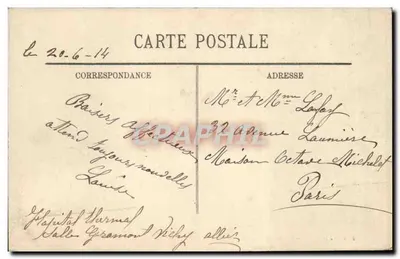 CARTE POSTALE
le 20-6-14
CORRESPONDANCE
ADRESSE
Baisers affectueux
attend toujours nouvelles
Louise
Hopital thermal
Salle Gramont Vichy allier
Mr et Mme Lafay
32 avenue Laumière
Maison Octave Michelet
Paris
CRAPHIL